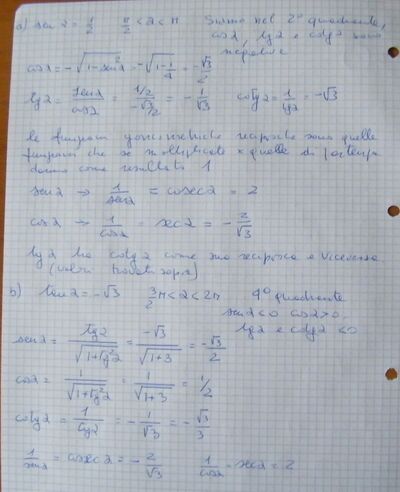 a) sen α = 1/2   π/2 < α < π   Siamo nel 2° quadrante,
cos α, tg α e cotg α sono
negative
cos α = -√(1-sen²α) = -√(1-1/4) = -√3/2
tg α = sen α/cos α = (1/2)/(-√3/2) = -1/√3   cotg α = 1/tg α = -√3
le funzioni goniometriche reciproche sono quelle
funzioni che se moltiplicate x quelle di partenza
danno come risultato 1
sen α → 1/sen α = cosec α = 2
cos α → 1/cos α = sec α = -2/√3
tg α ha cotg α come sua reciproca e viceversa
(valori trovati sopra)
b) tan α = -√3   3/2 π < α < 2π   4° quadrante
sen α < 0 cos α > 0,
tg α e cotg α < 0
sen α = tg α/√(1+tg²α) = -√3/√(1+3) = -√3/2
cos α = 1/√(1+tg²α) = 1/√(1+3) = 1/2
cotg α = 1/tg α = -1/√3 = -√3/3
1/sen α = cosec α = -2/√3   1/cos α = sec α = 2